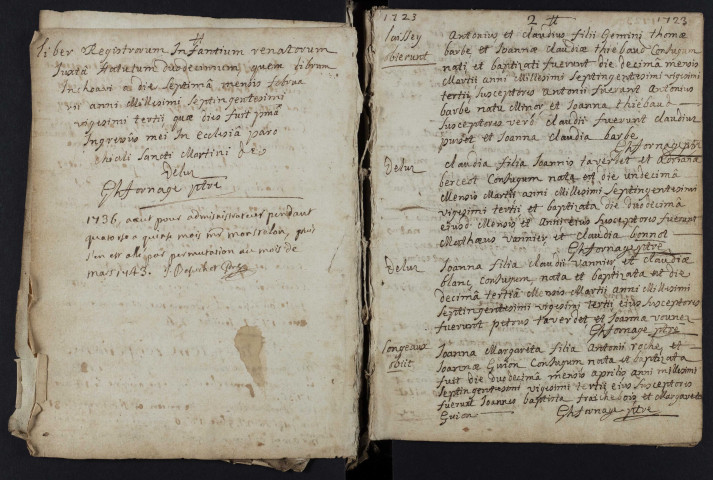 Liber Registrorum Infantium renatorum
Juxta statutum duodecimum, quem librum
Inchoavi a die septima mensis februa
rii anni Millesimi septingentesimi
vigesimi tertii quæ dies fuit prima
Ingressus mei In Ecclesia paro
chiali Sancti Martini
Delux
Ghfornage ptre
1736, a eut pour administrateur pendant
quatorze a quinze mois mr monsrelon, puis
s'en est allé par permutation au mois de
mars 1743.
1723 2 1723
Antonius et claudius filii Gemini thomæ
barbe et Joannæ claudiæ thiebaud Conjugum
nati et baptizati fuerunt die decima mensis
Martii anni Millesimi septingentesimi vigesimi
tertii, susceptores Antonii fuerunt Antonius
barbe natu Minor et Joanna thiebaut
susceptores vero claudii fuerunt claudius
purdet et Joanna claudia barbe.
Ghfornage ptre
obierunt
Delux
claudia filia Joannis taverdet et Adriana
bercet Conjugum nata est die undecima
Mensis Martii anni Millesimi septingentesimi
vigesimi tertii et baptizata die duodecima
ejusd Mensis et Anni ejus susceptores fuerunt
Mathæus Vannier, et claudia bonnot
Ghfornage ptre
Delux
Joanna filia claudii Vannier et claudiæ
blanc Conjugum nata et baptizata est die
decima tertia Mensis Martii anni Millesimi
septingentesimi vigesimi tertii ejus susceptores
fuerunt petrus taverdet et Joanna vournez
Ghfornage ptre
Longeaux
obiit
Joanna Margarita filia Antonii roche, et
Joannæ Guion Conjugum nata et baptizata
fuit die duodecima mensis aprilis anni millesimi
septingentesimi vigesimi tertii ejus susceptores
fuerunt Joannes baptista fraichebois et Margareta
Guion Ghfornage ptre